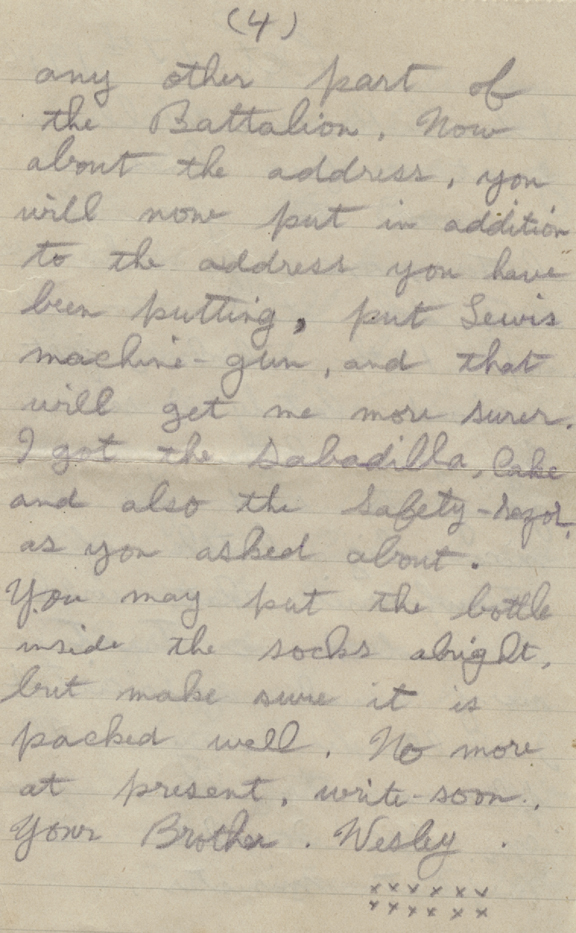 (4)
any other part of
the Battalion. Now
about the address, you
will now put in addition
to the address you have
been putting, put Lewis
machine-gun, and that
will get me more surer.
I got the Sabadilla, Cake
and also the Safety-Razor,
as you asked about.
You may put the bottle
inside the socks alright,
but make sure it is
packed well. No more
at present, write-soon.
Your Brother. Wesley.
x x x x x x
x x x x x x